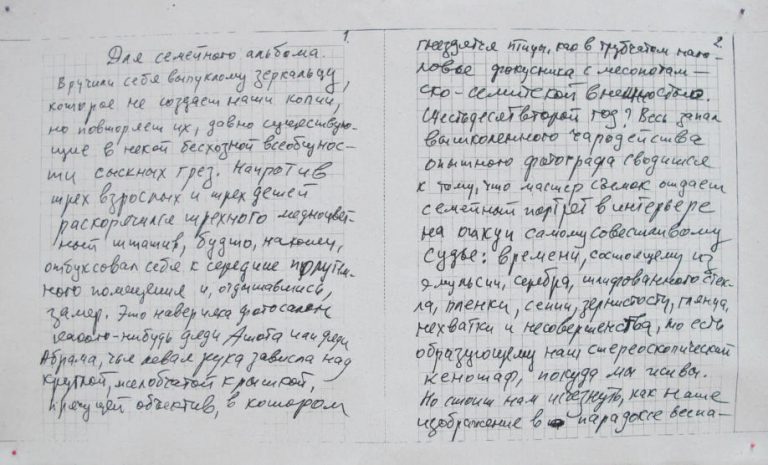 1.
Для семейного альбома.
Вручили себя выпуклому зеркальцу,
которое не создаст наши копии,
но повторяет их, давно существую-
щие в некой бесхозной всеобщнос-
ти сыскных грез. Напротив
трех взрослых и трех детей
раскорячился трехного медноцвет-
ный штатив, будто, наконец,
отбуксовал себя к середине
ного помещения и, отдышавшись,
замер. Это наверняка фотосалон
какого-нибудь дяди Ашота или дяди
Абрама, чья левая рука зависла над
круглой, желобчатой крышкой,
прячущей объектив, в котором
2.
гнездятся птицы, как в трубчатом
ловье фокусника с месопотам-
ско-семитской внешностью.
Шестьдесят второй год? Весь запал
вышколенного чародейства
опытного фотографа сводится
к тому, что мастер съемок отдает
семейный портрет в интерьере
на откуп самому совестливому
судье: времени, состоящему из
эмульсии, серебра, шлифованного стек-
ла, пленки, сепии, зернистости, глянца,
нехватки и несовершенства, то есть
образующему наш стереоскопический
кенотаф, покуда мы живы.
Но стоит нам исчезнуть, как наше
изображение в парадоксе беспа-